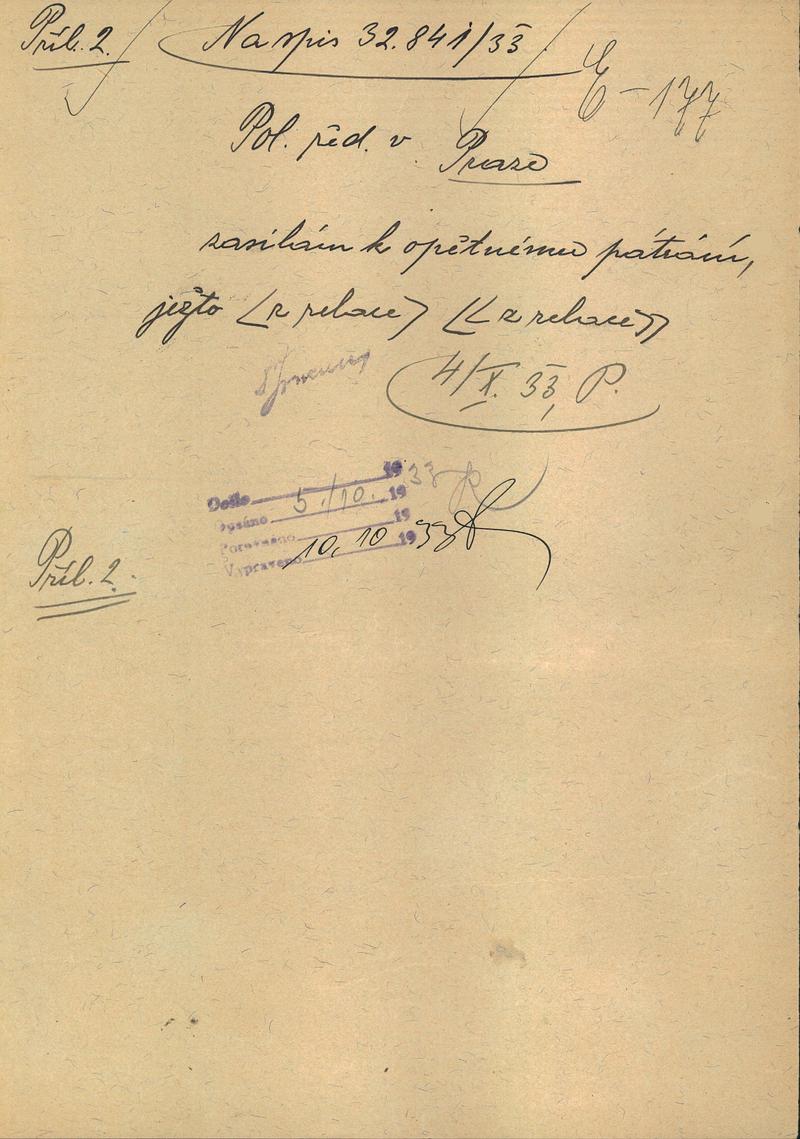 Příl. 2. Na spis 32.841/33
E-177
Pol. řed. v Praze
zasílám k opětnému pátrání,
ježto <z relace> <<z relace>>
4/X. 33, P.
Došlo 5./10. 1933
Psáno 19
Porovnáno 19
Vypraveno 10. 10 1933
Příl. 2.